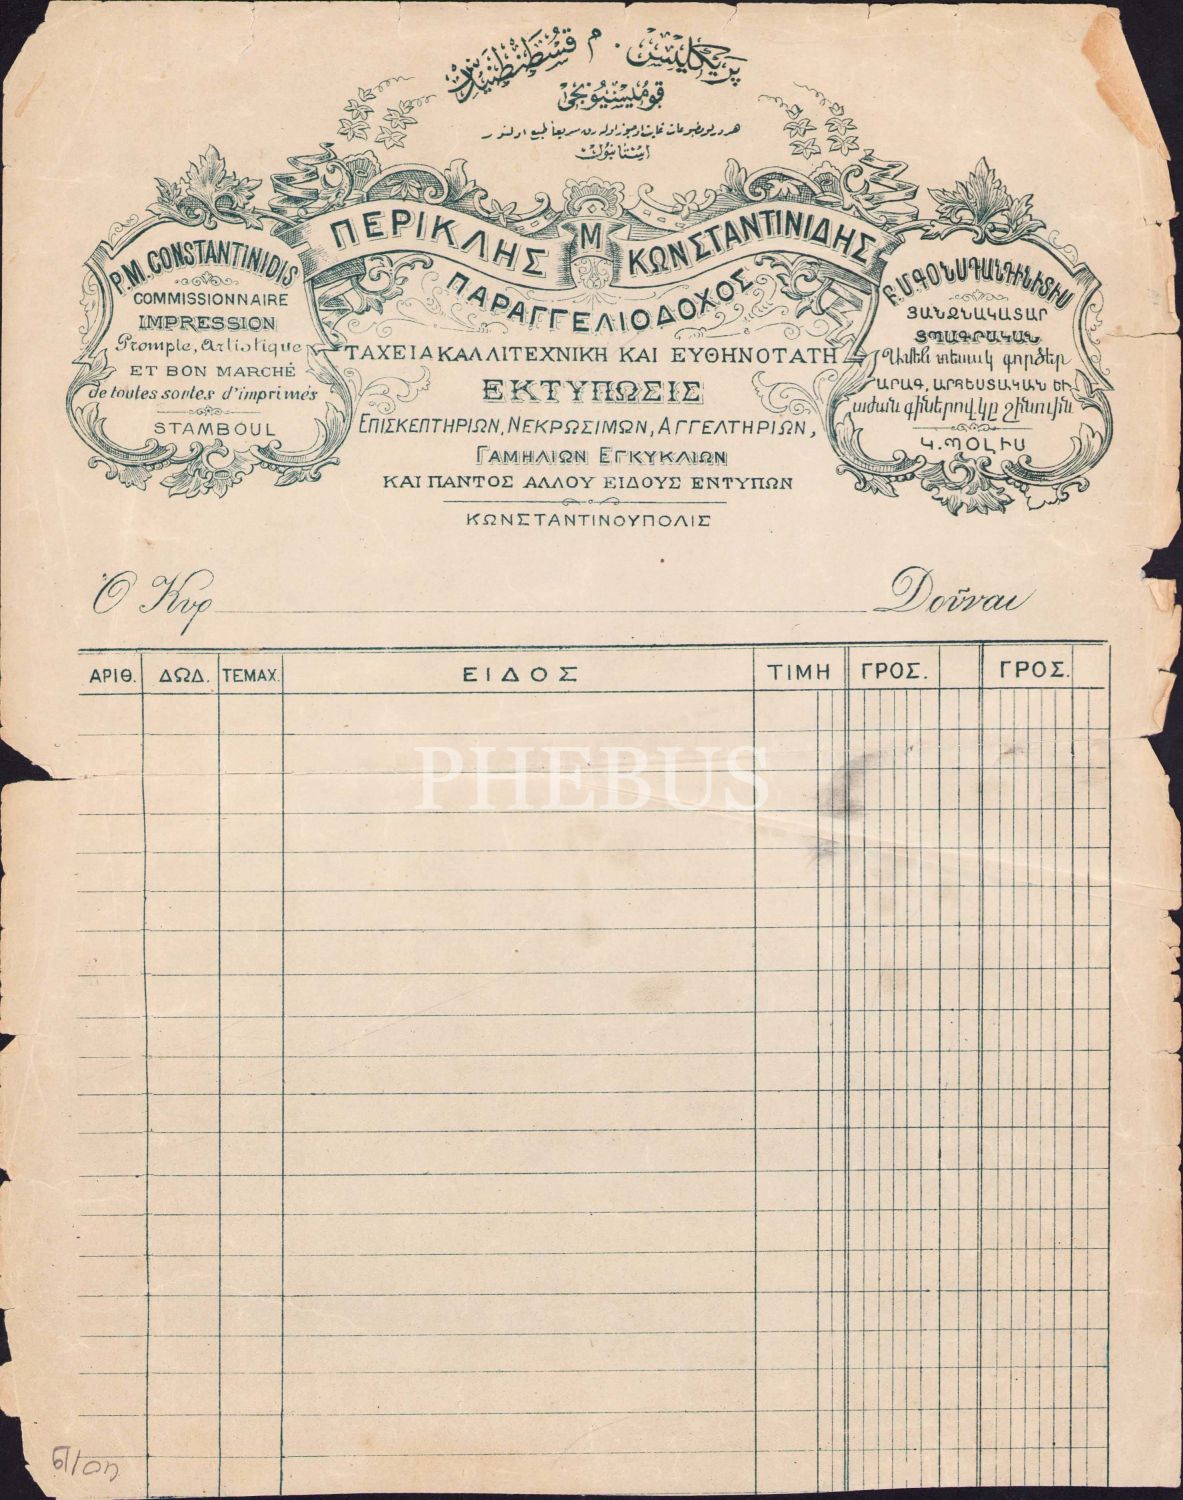 پریکلیس . م قسطنطنیدس
قومیسیونجی
استانبول
ΠΕΡΙΚΛΗΣ Μ ΚΩΝΣΤΑΝΤΙΝΙΔΗΣ
ΠΑΡΑΓΓΕΛΙΟΔΟΧΟΣ
ΤΑΧΕΙΑ ΚΑΛΛΙΤΕΧΝΙΚΗ ΚΑΙ ΕΥΘΗΝΟΤΑΤΗ
ΕΚΤΥΠΩΣΙΣ
ΕΠΙΣΚΕΠΤΗΡΙΩΝ, ΝΕΚΡΩΣΙΜΩΝ, ΑΓΓΕΛΤΗΡΙΩΝ,
ΓΑΜΗΛΙΩΝ ΕΓΚΥΚΛΙΩΝ
ΚΑΙ ΠΑΝΤΟΣ ΑΛΛΟΥ ΕΙΔΟΥΣ ΕΝΤΥΠΩΝ
ΚΩΝΣΤΑΝΤΙΝΟΥΠΟΛΙΣ
P. M. CONSTANTINIDIS
COMMISSIONNAIRE
IMPRESSION
Prompte, Artistique
ET BON MARCHÉ
de toutes sortes d'imprimés
STAMBOUL
Բ. Մ. ԳՕՆՍԴԱՆԴԻՆԻՏԻՍ
ՅԱՆՁՆԱԿԱՏԱՐ
ՏՊԱԳՐԱԿԱՆ
Ամեն տեսակ գործեր
ԱՐԱԳ, ԱՐՀԵՍՏԱԿԱՆ ԵՒ
աժան գիներով կը շինուին
Կ. ՊՕԼԻՍ
Ὁ Κυρ Δοῦναι
ΑΡΙΘ. ΔΩΔ. ΤΕΜΑΧ. ΕΙΔΟΣ ΤΙΜΗ ΓΡΟΣ. ΓΡΟΣ.
PHEBUS